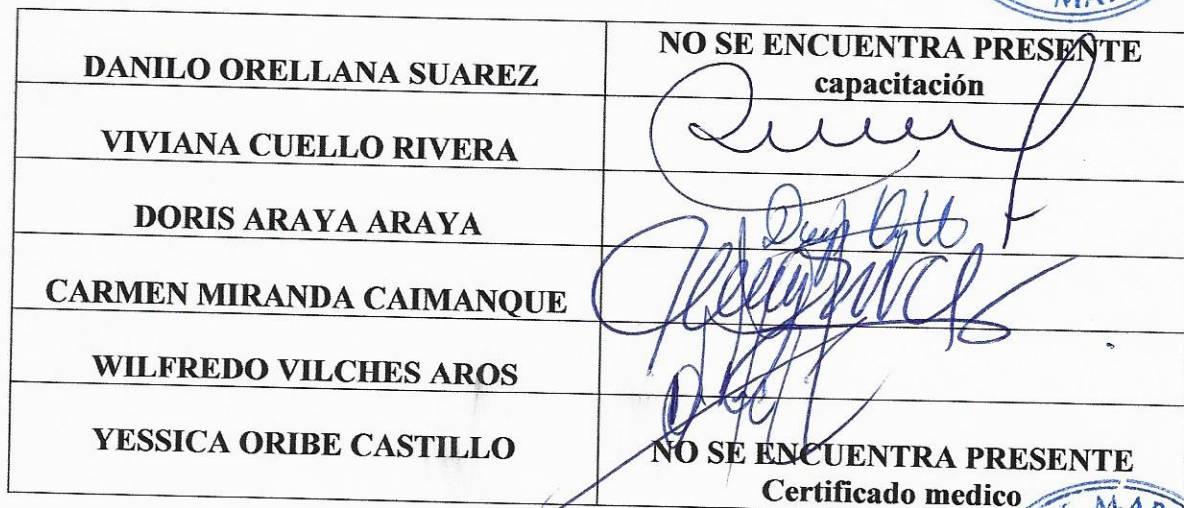 DANILO ORELLANA SUAREZ
NO SE ENCUENTRA PRESENTE
capacitación
VIVIANA CUELLO RIVERA
DORIS ARAYA ARAYA
CARMEN MIRANDA CAIMANQUE
WILFREDO VILCHES AROS
YESSICA ORIBE CASTILLO
NO SE ENCUENTRA PRESENTE
Certificado medico